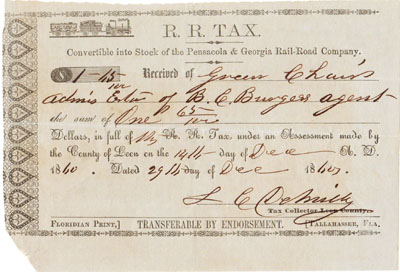 R. R. TAX.
Convertible into Stock of the Pensacola & Georgia Rail-Road Company.
$1-65/100 Received of Green Chairs
Admis Est of B. C. Burgess agent
the sum of One 65/100
Dollars, in full of R. R. Tax, under an Assessment made by
the County of Leon on the 14th day of Dec A. D.
1860. Dated 29th day of Dec 1860.
Tax Collector Leon County.
FLORIDIAN PRINT,] TRANSFERABLE BY ENDORSEMENT. [TALLAHASSEE, FLA.